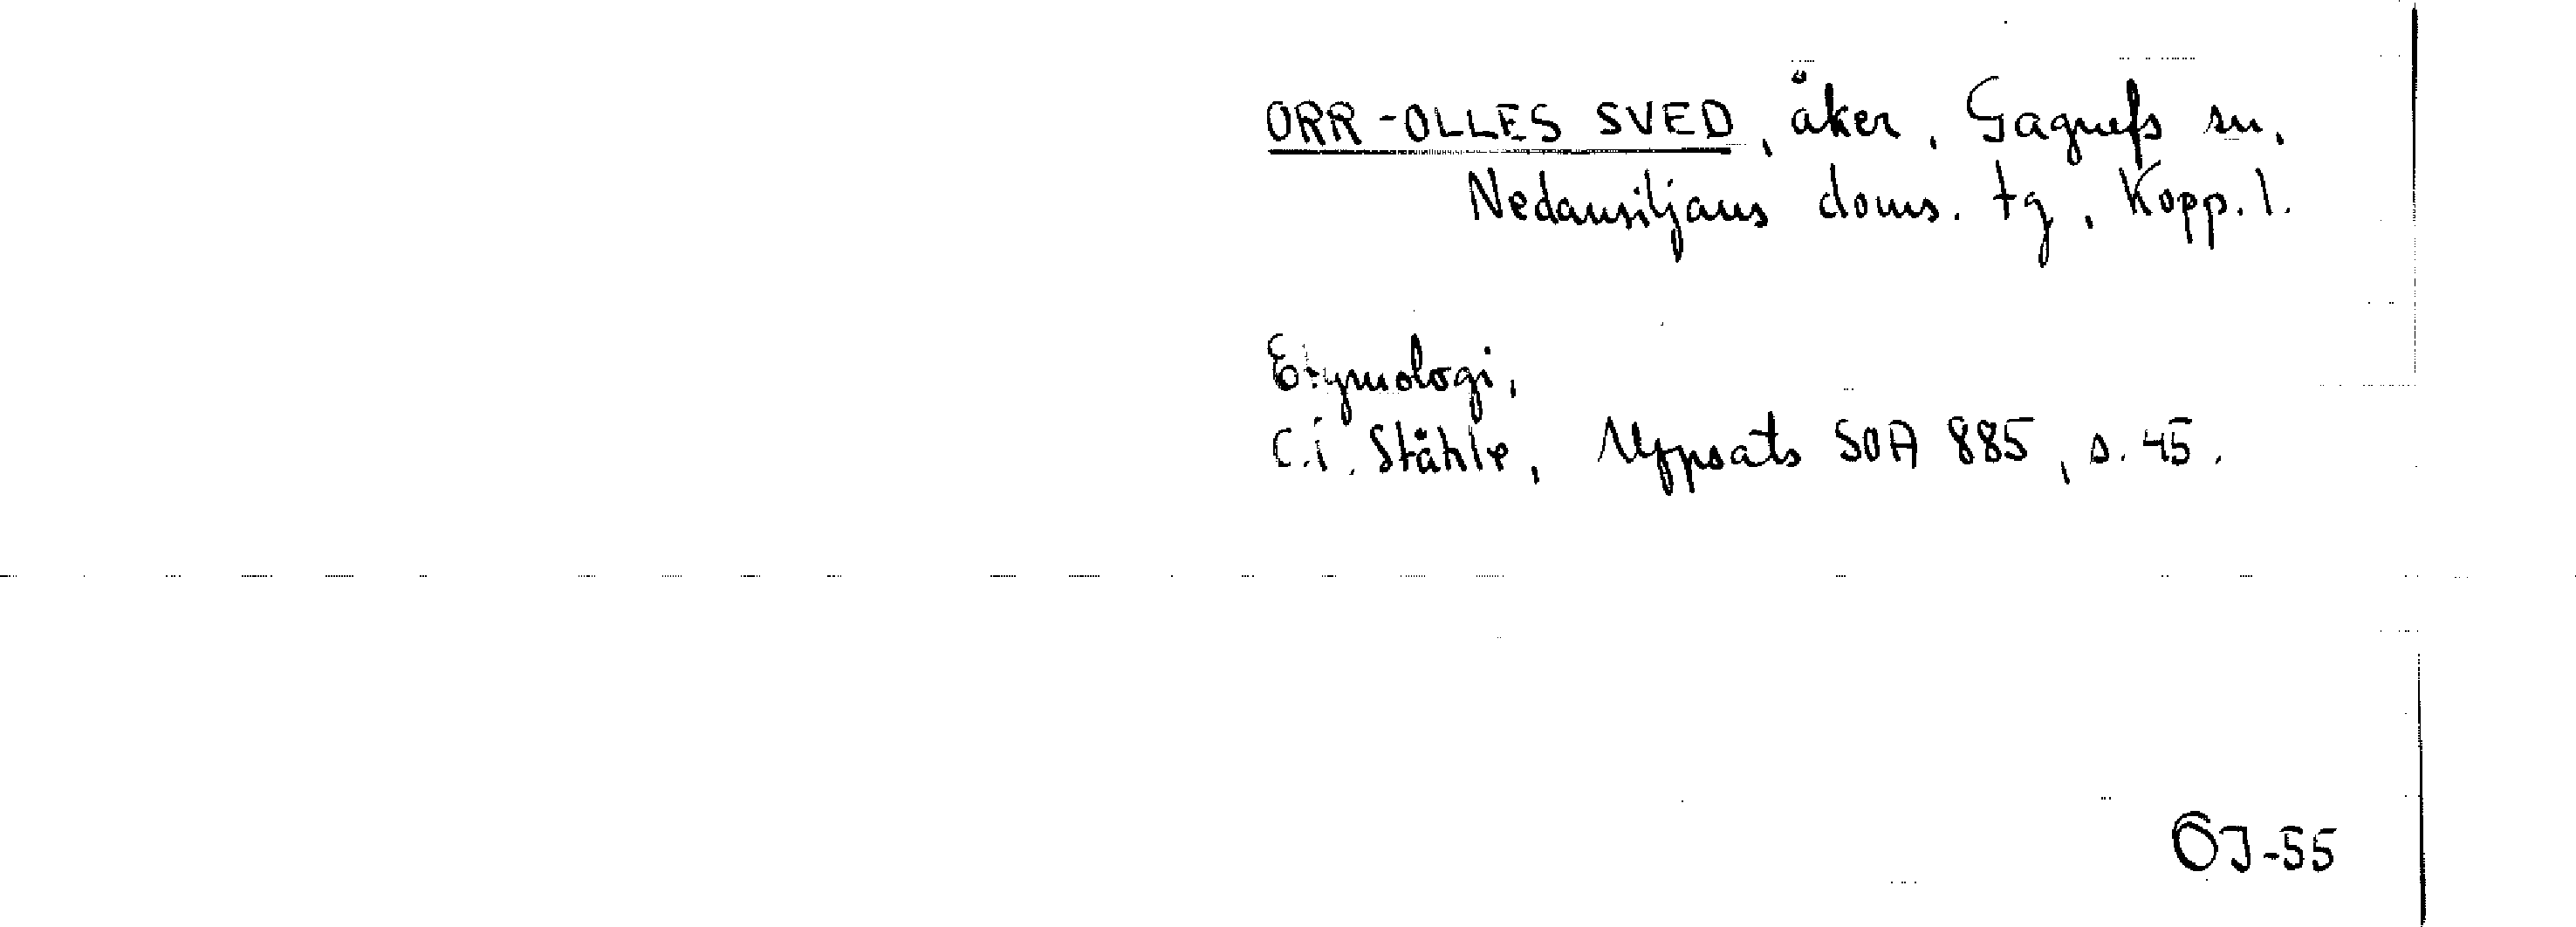 ORR-OLLES SVED, åker, Gagnefs sn,
Nedansiljans doms. tg, Kopp. l.
Etymologi,
C.I. Ståhle, Uppsats SOA 885, s. 45.
ÖJ-55